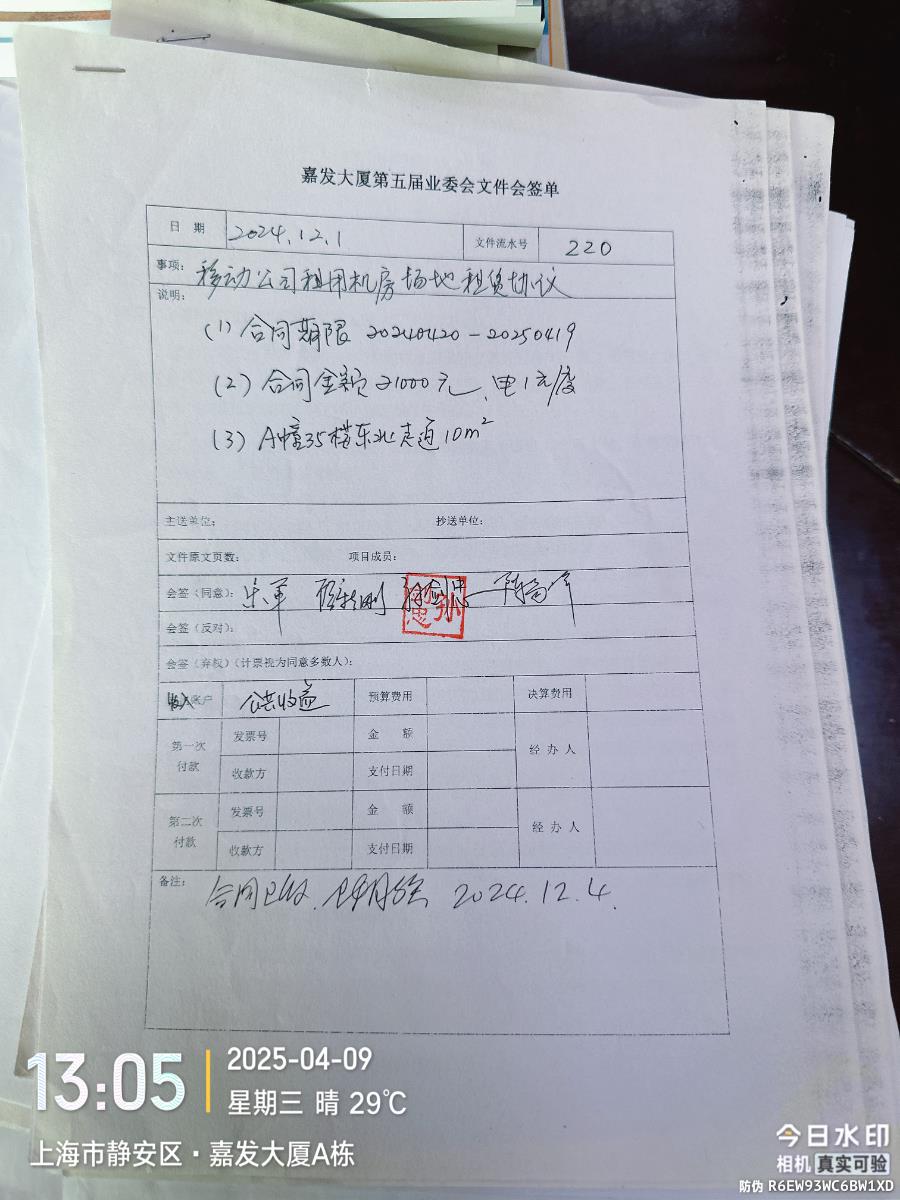 嘉发大厦第五届业委会文件会签单
日 期 2024.12.1 文件流水号 220
事项: 移动公司租用机房场地租赁协议
说明:
(1) 合同期限 20240420-20250419
(2) 合同金额 21000元、电1元/度
(3) A幢35楼东北走道10m²
主送单位: 抄送单位:
文件原文页数: 项目成员:
会签(同意):
会签(反对):
会签(弃权)(计票视为同意多数人):
收入账户 公共收益 预算费用 决算费用
第一次付款 发票号 金 额 经 办 人
收款方 支付日期
第二次付款 发票号 金 额 经 办 人
收款方 支付日期
备注: 合同已收. 2024.12.4.
13:05
2025-04-09
星期三 晴 29℃
上海市静安区·嘉发大厦A栋
今日水印
相机 真实可验
防伪 R6EW93WC6BW1XD